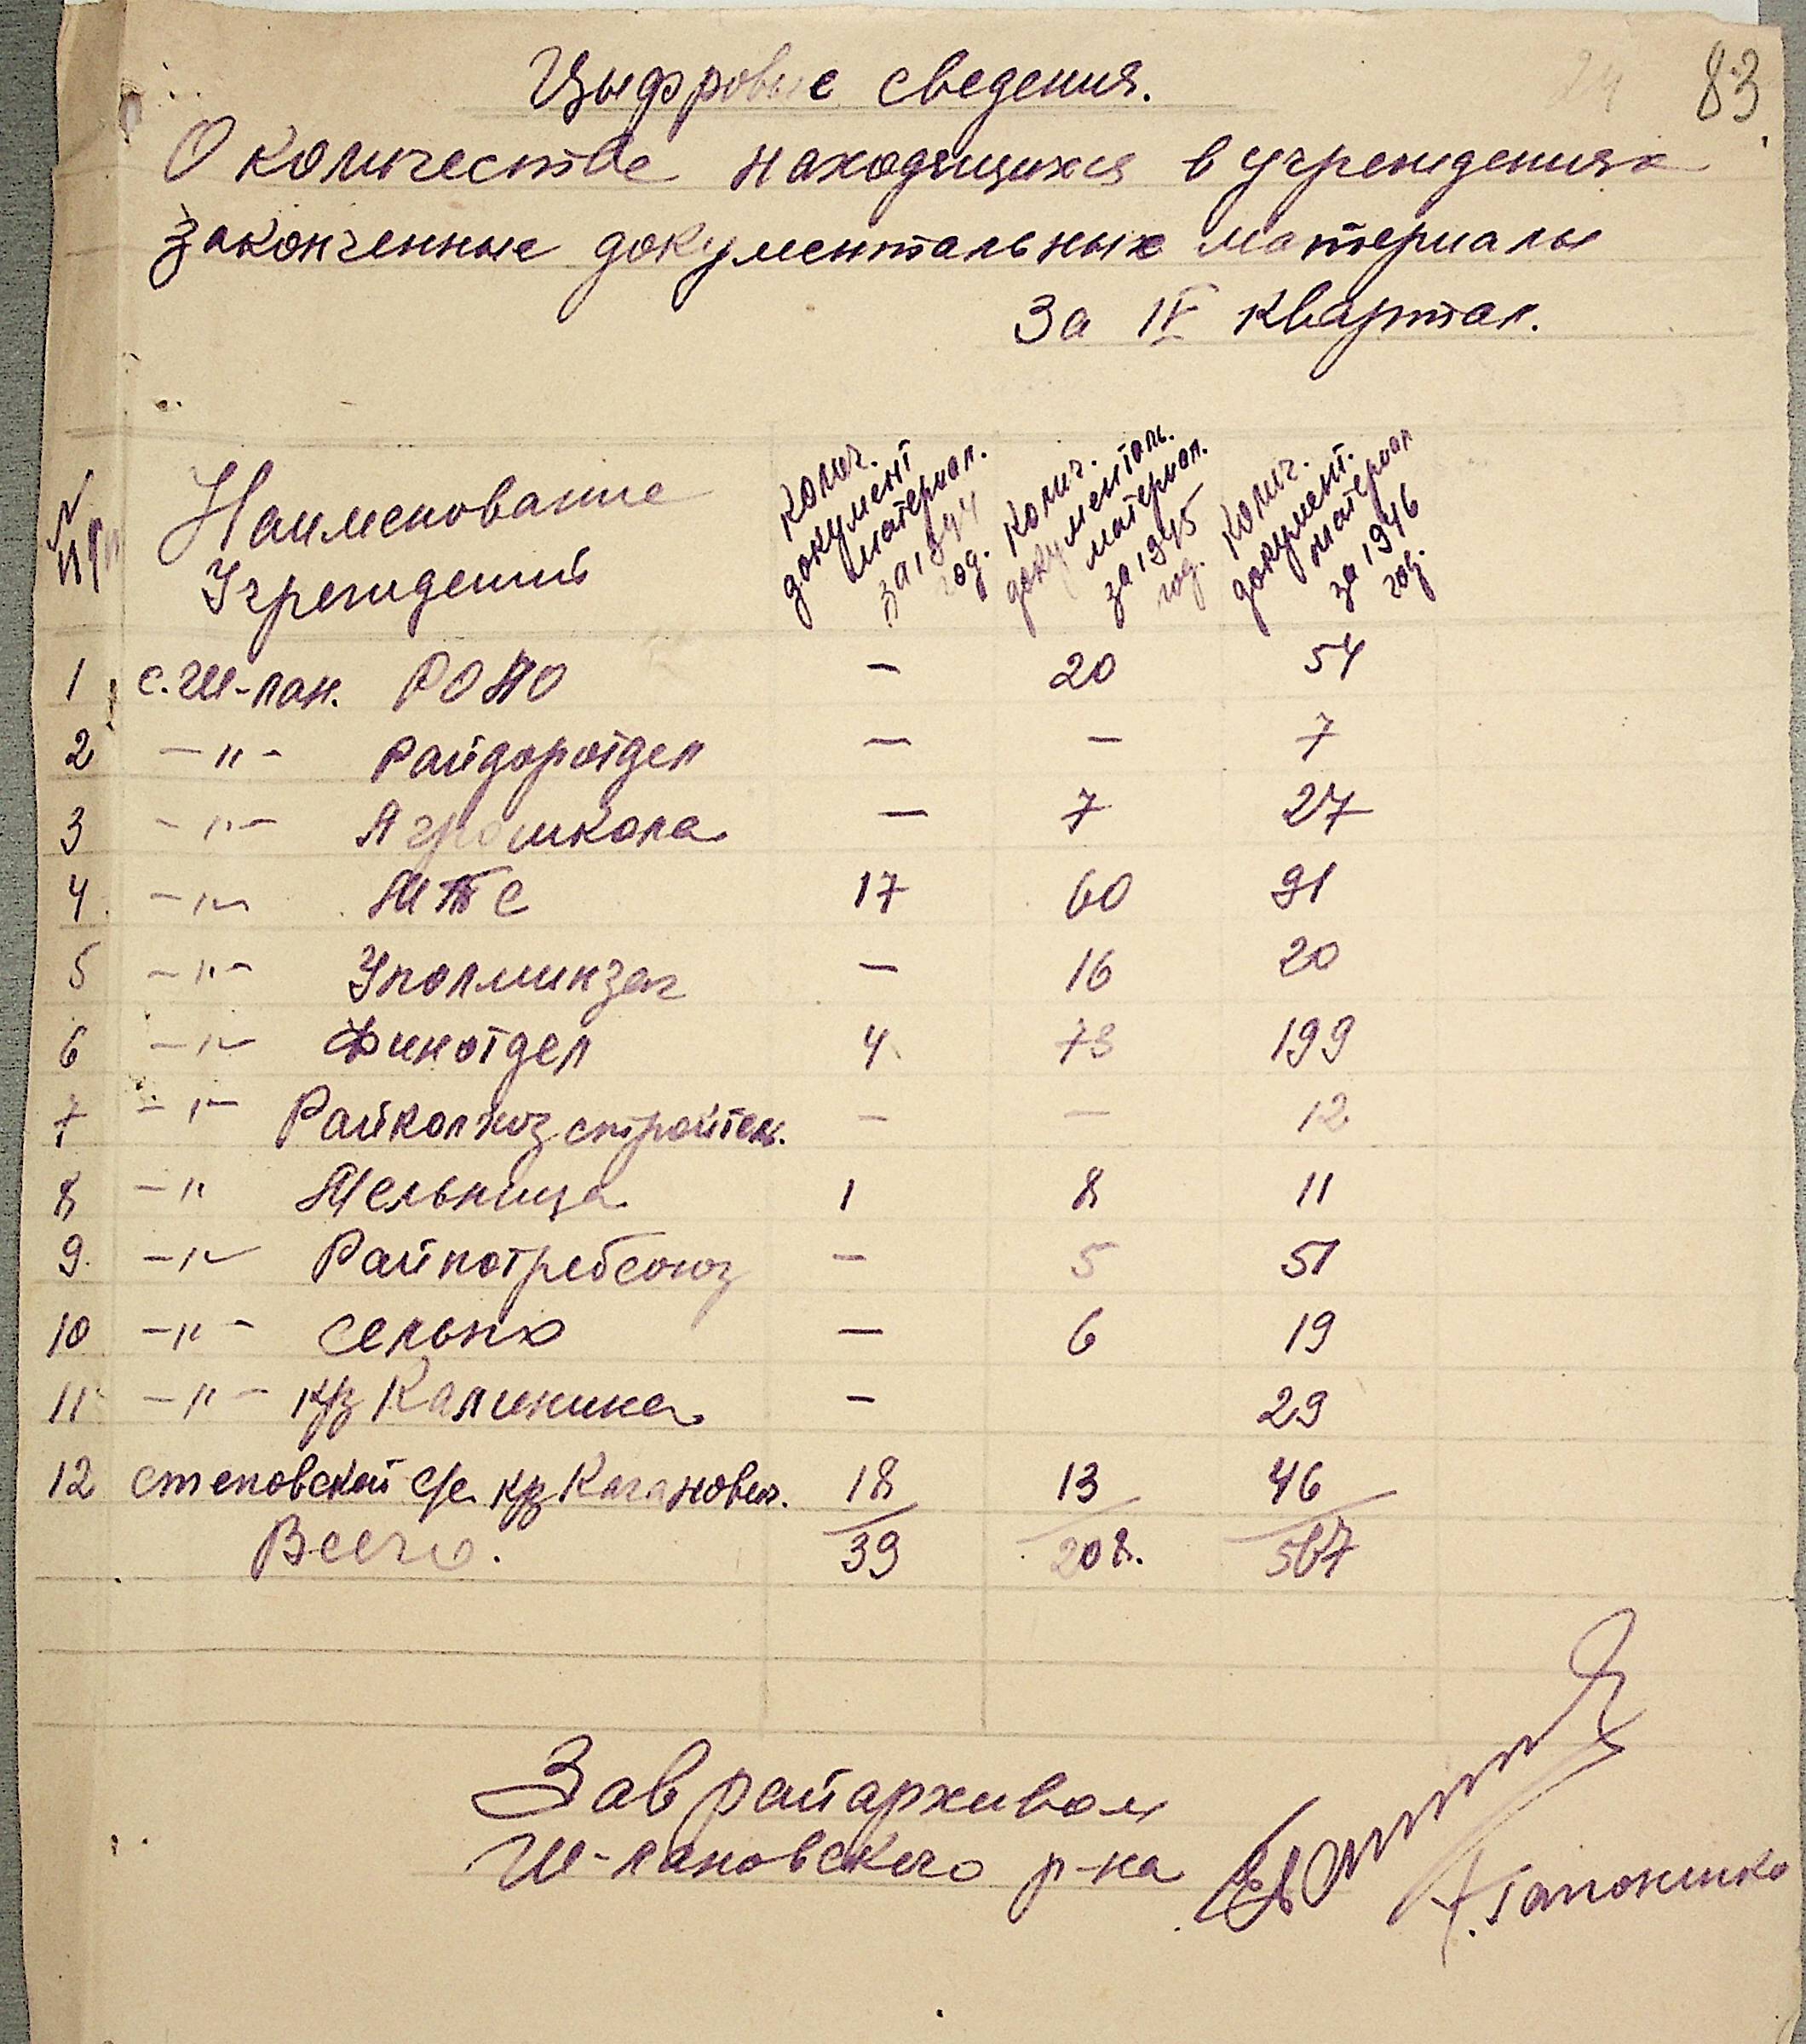 83
Цыфровые сведения.
О количестве находящихся в учреждениях
законченные документальных материалы
За IV квартал.
№ п/п Наименование Учреждений Колич. документ материал. за 1944 год. Колич. документаль. материал. за 1945 год. Колич. документ. материал за 1946 год
1 с. Ш-лан. РОНО — 20 54
2 —"— Райдоротдел — — 7
3 —"— Агрошкола — 7 27
4 —"— МТС 17 60 91
5 —"— Уполминзаг — 16 20
6 —"— Финотдел 4 73 199
7 —"— Райколхозстройтель. — — 12
8 —" Мельница 1 8 11
9. —"— Райпотребсоюз — 5 51
10 —"— Сельпо — 6 19
11 —"— к/з Калинина — 29
12 Степовской с/с к/з Каганович. 18 13 46
Всего. 39 208. 567
Зав райархивом
Ш-лановского р-на
Гапоненко